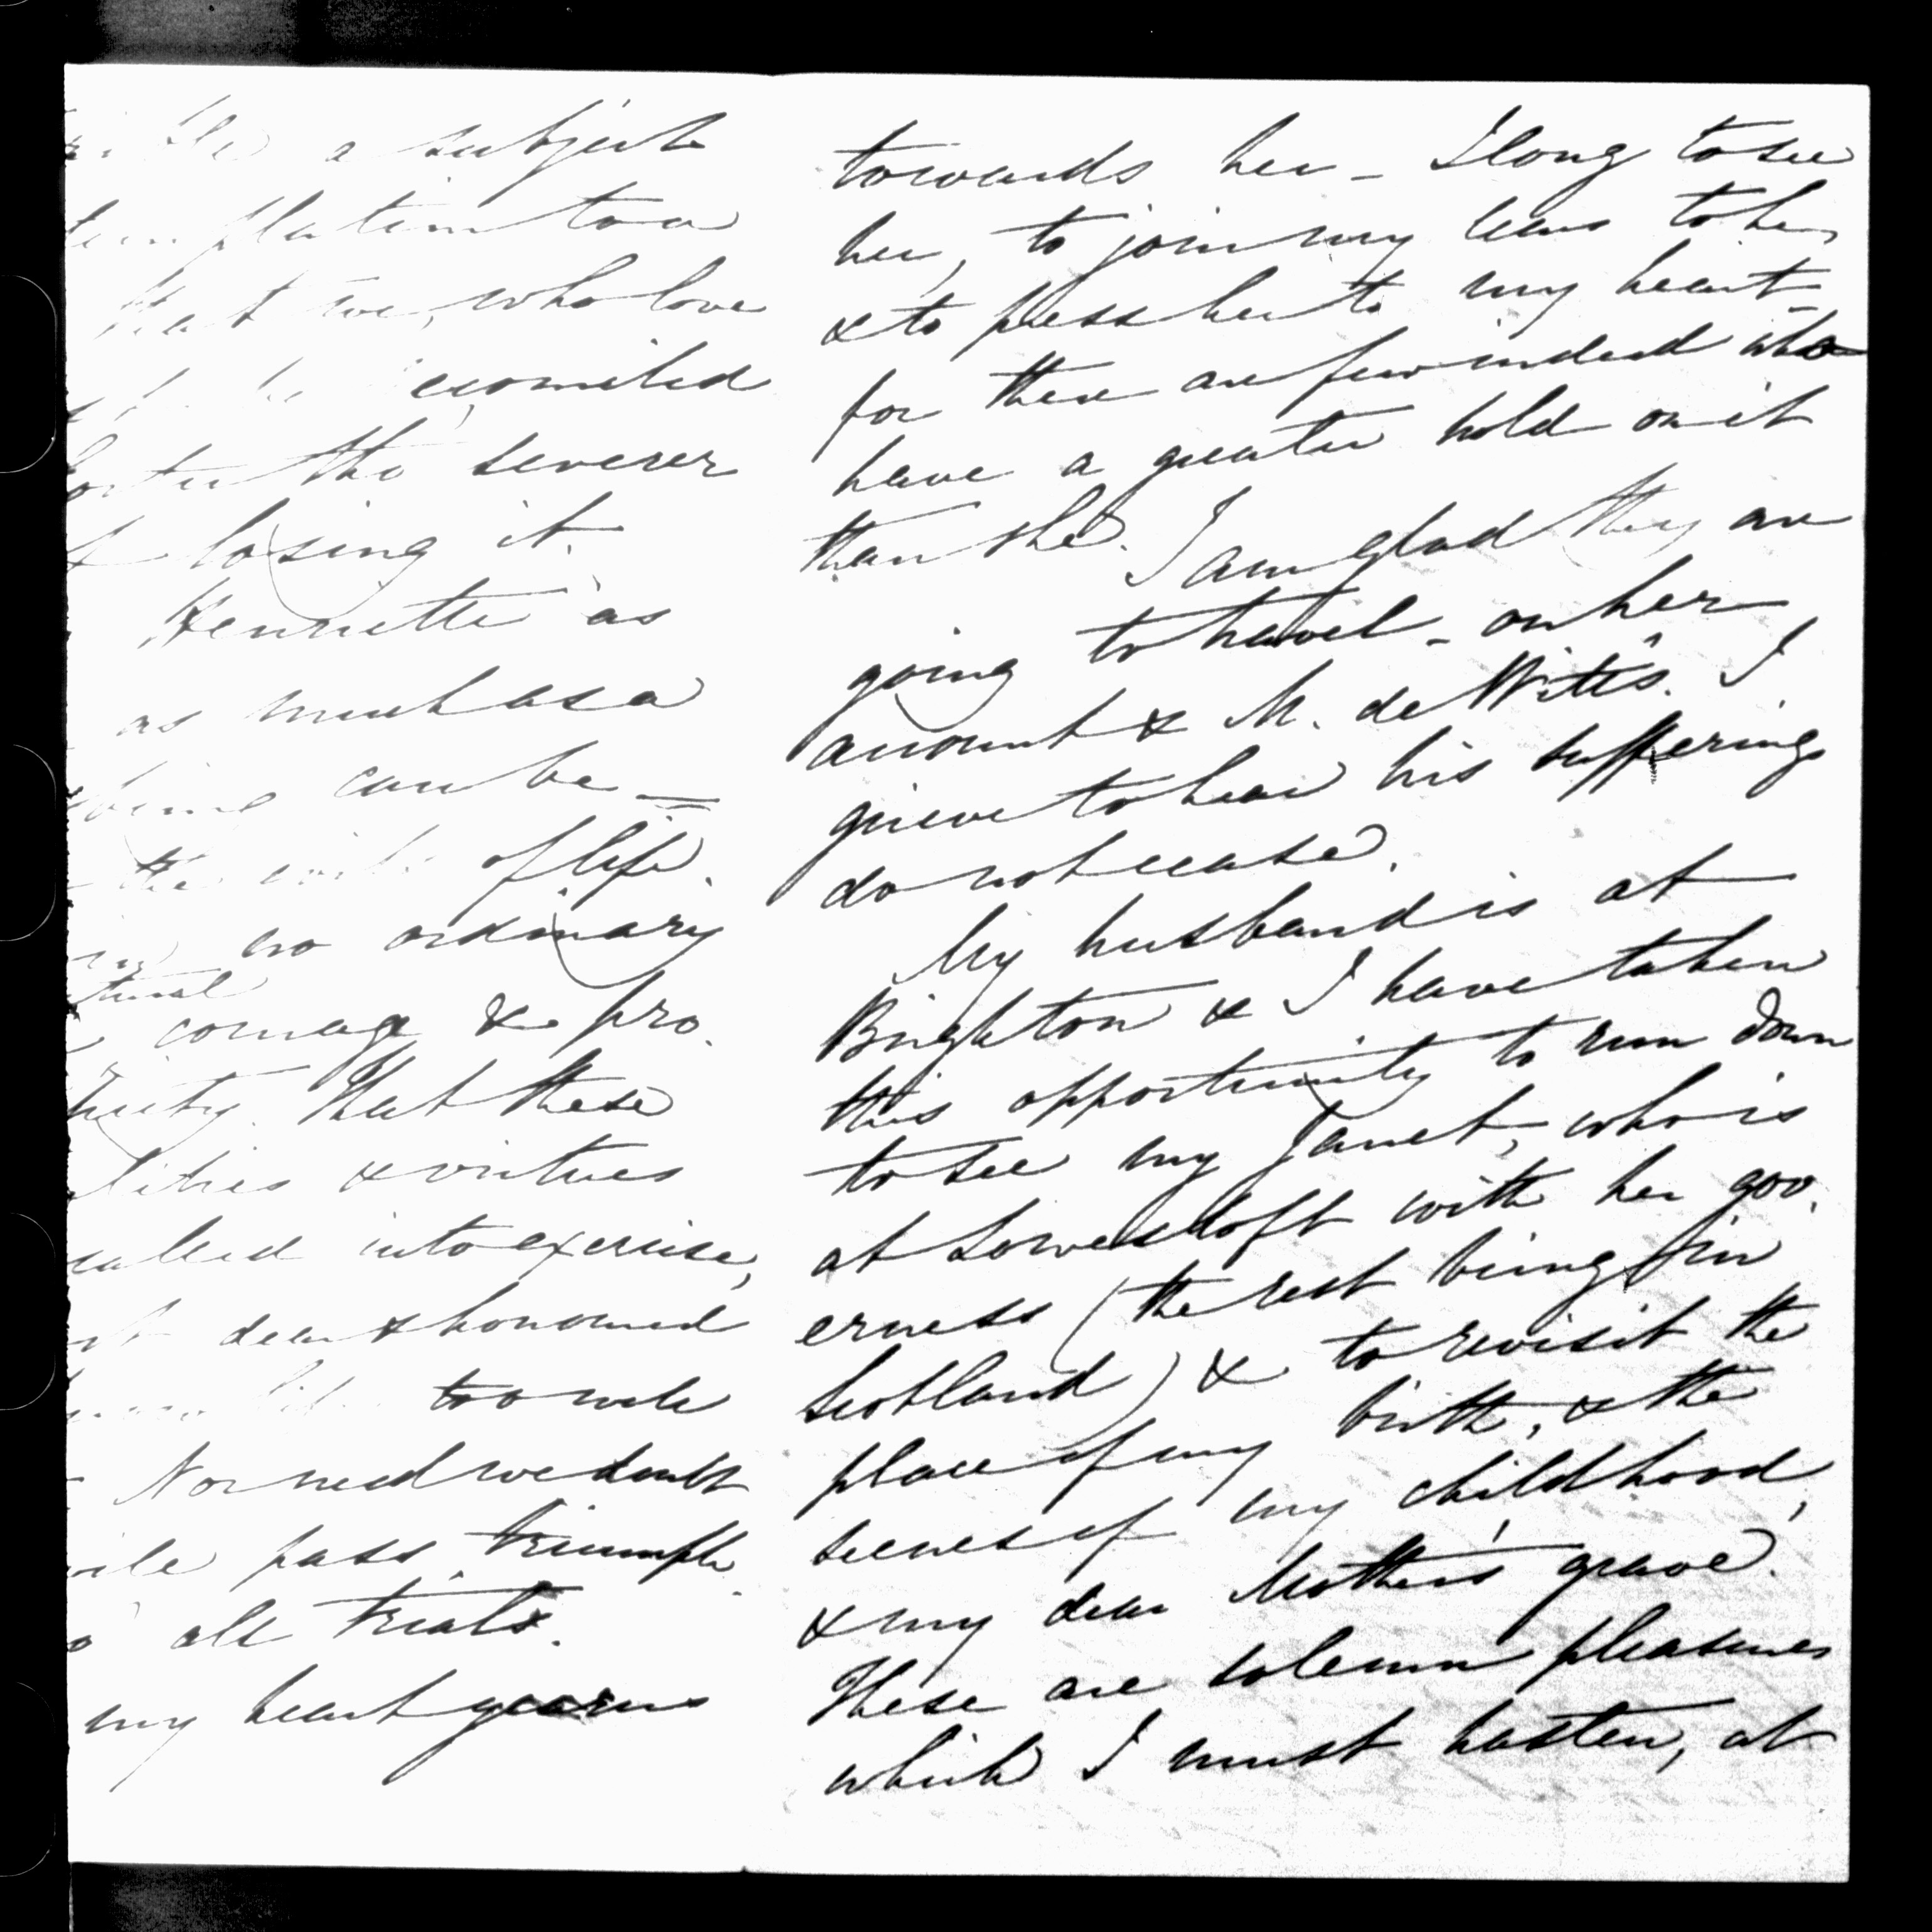 a subject
to a
that we, who love
severer
losing it.
Henriette as
as much as a
can be —
of life.
no ordinary
courage & pro-
That these
& virtues
called into exercise,
dear & honoured
too well
Nor need we doubt
pass triumph-
all trials.
my heart yearns
towards her – I long to see
her, to join my tears to hers
& to press her to my heart –
for there are few indeed who
have a greater hold on it
than she. I am glad they are
going to travel – on her
account & M. de Witt's. I
grieve to hear his sufferings
do not cease.
My husband is at
Brighton & I have taken
this opportunity to run down
to see my Janet, who is
at Lowestoft with her gov-
erness (the rest being in
Scotland) & to revisit the
place of my birth, & the
scenes of my childhood,
& my dear Mother's grave.
These are solemn pleasures
which I must hasten, at